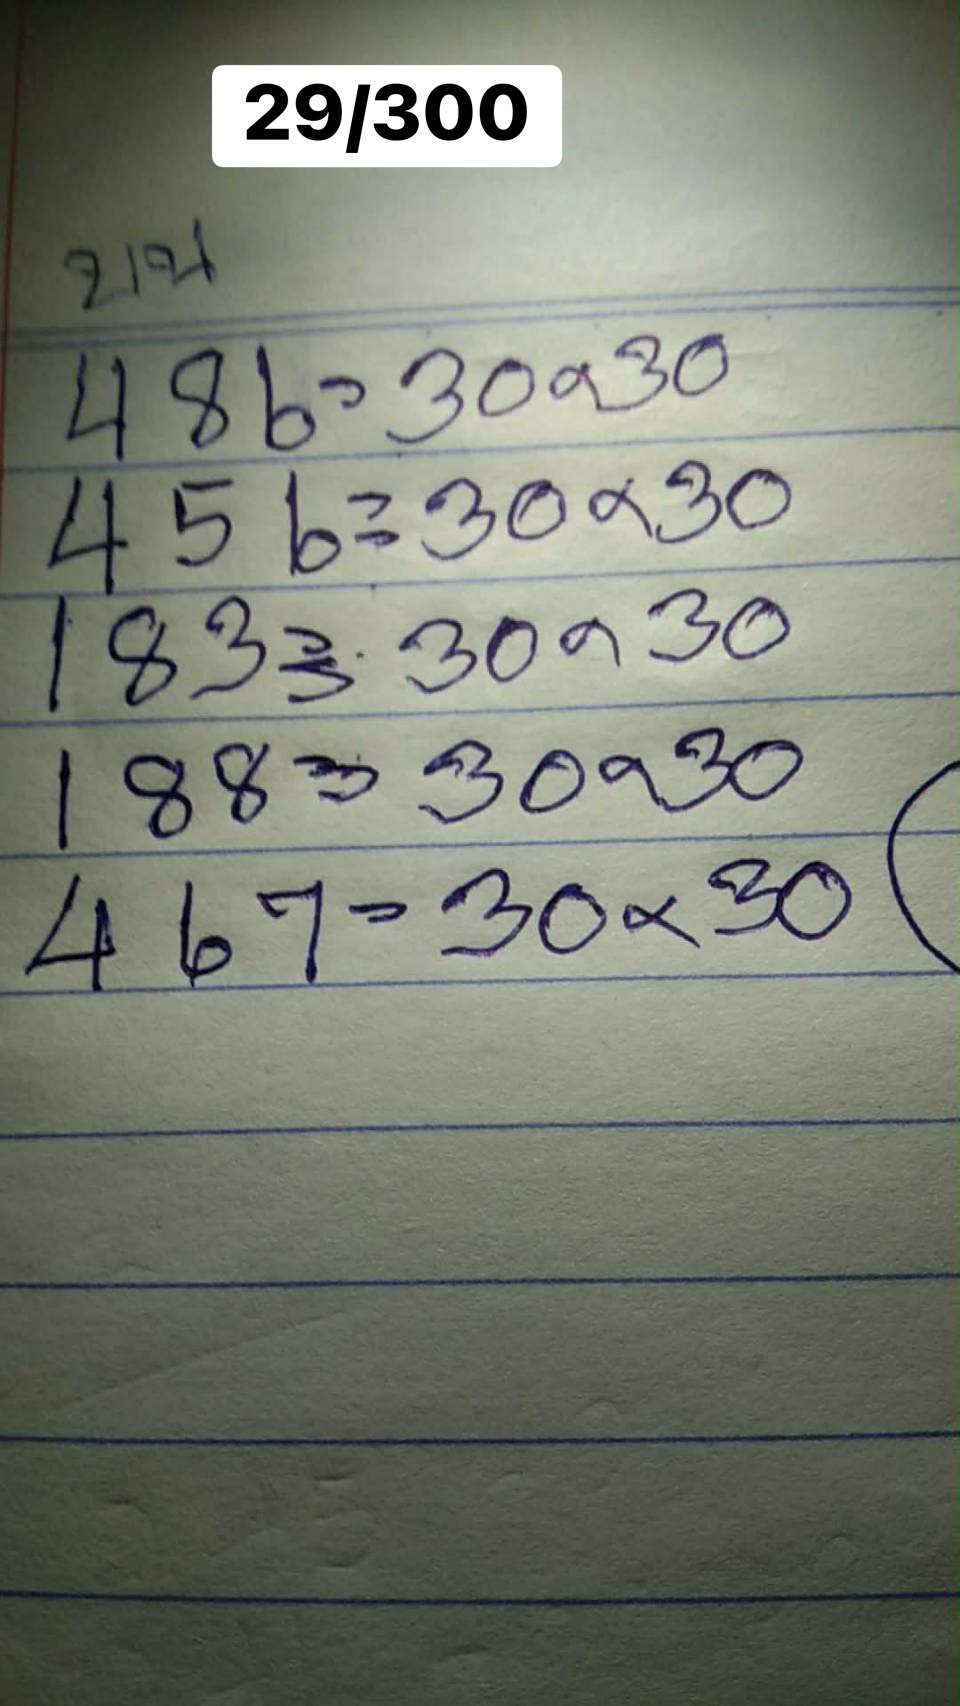 29/300
บาท
486=30×30
456=30×30
183=30×30
188=30×30
467=30×30